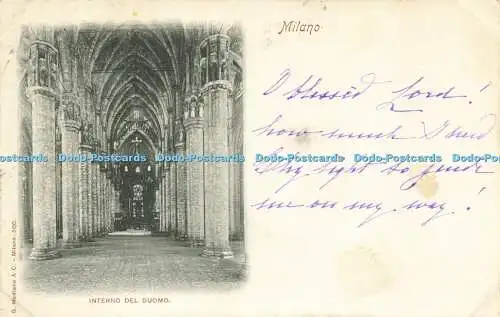 Milano
O blessed Lord!
how much I need
Thy light to guide
me on my way!
Dodo-Postcards Dodo-Postcards Dodo-Postcards Dodo-Postcards Dodo-Postcards
INTERNO DEL DUOMO.
A. C. - Milano